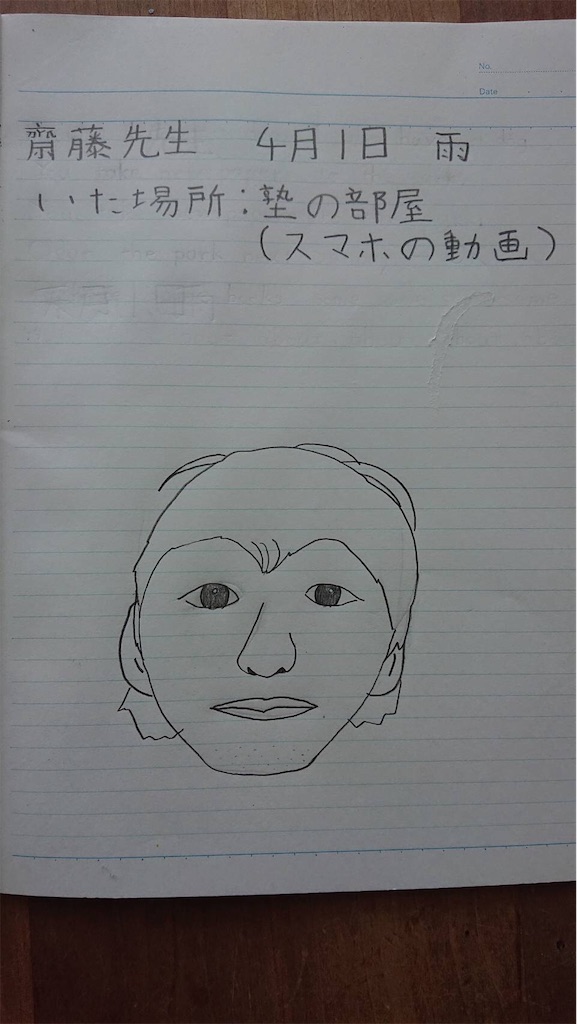 No.
Date
齋藤先生　4月1日　雨
いた場所：塾の部屋
（スマホの動画）